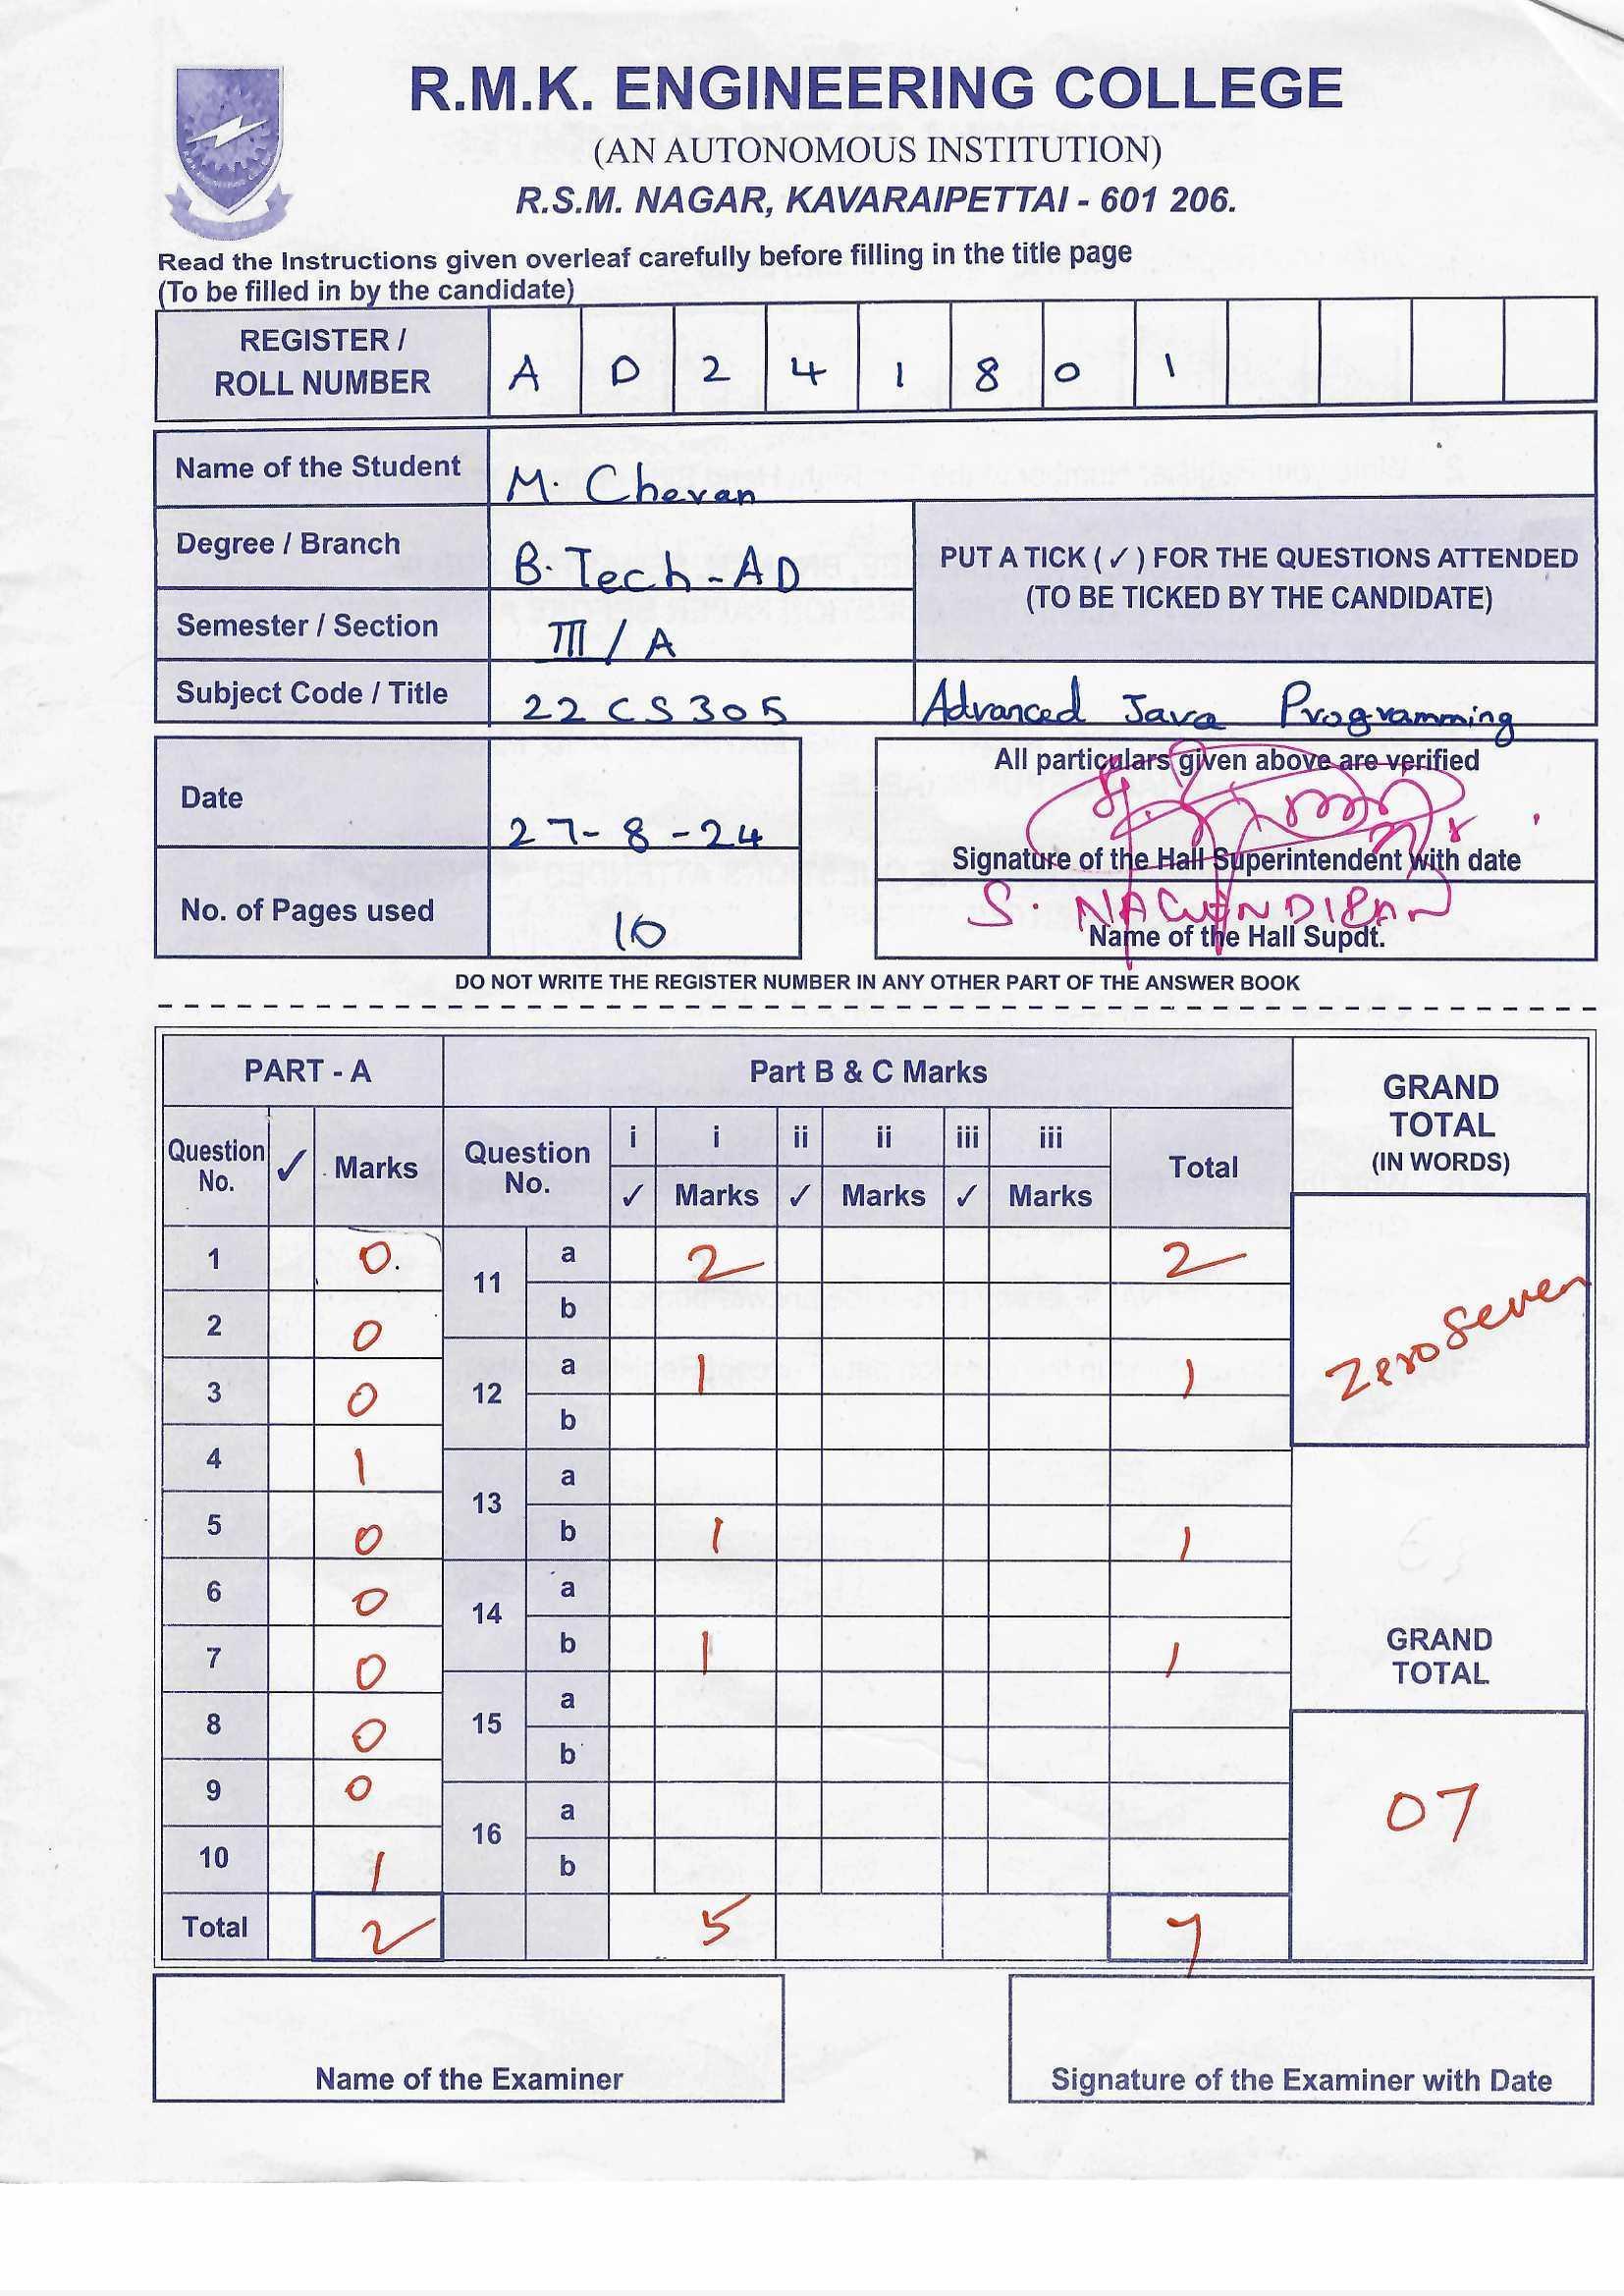 R.M.K. ENGINEERING COLLEGE
(AN AUTONOMOUS INSTITUTION)
R.S.M. NAGAR, KAVARAIPETTAI - 601 206.
Read the Instructions given overleaf carefully before filling in the title page
(To be filled in by the candidate)
REGISTER / ROLL NUMBER A D 2 4 1 8 0 1
Name of the Student M. Chevan
Degree / Branch B. Tech - AD
PUT A TICK ( ✓ ) FOR THE QUESTIONS ATTENDED
(TO BE TICKED BY THE CANDIDATE)
Semester / Section III / A
Subject Code / Title 22CS305 Advanced Java Programming
Date 27-8-24
All particulars given above are verified
Signature of the Hall Superintendent with date
No. of Pages used 10
S.
Name of the Hall Supdt.
DO NOT WRITE THE REGISTER NUMBER IN ANY OTHER PART OF THE ANSWER BOOK
PART - A
Question No. ✓ Marks
1 0
2 0
3 0
4 1
5 0
6 0
7 0
8 0
9 0
10 1
Total 2
Part B & C Marks
Question No. i ✓ i Marks ii ✓ ii Marks iii ✓ iii Marks Total
11 a 2 2
b
12 a 1 1
b
13 a
b 1 1
14 a
b 1 1
15 a
b
16 a
b
5 7
GRAND TOTAL
(IN WORDS)
Zero Seven
GRAND TOTAL
07
Name of the Examiner
Signature of the Examiner with Date